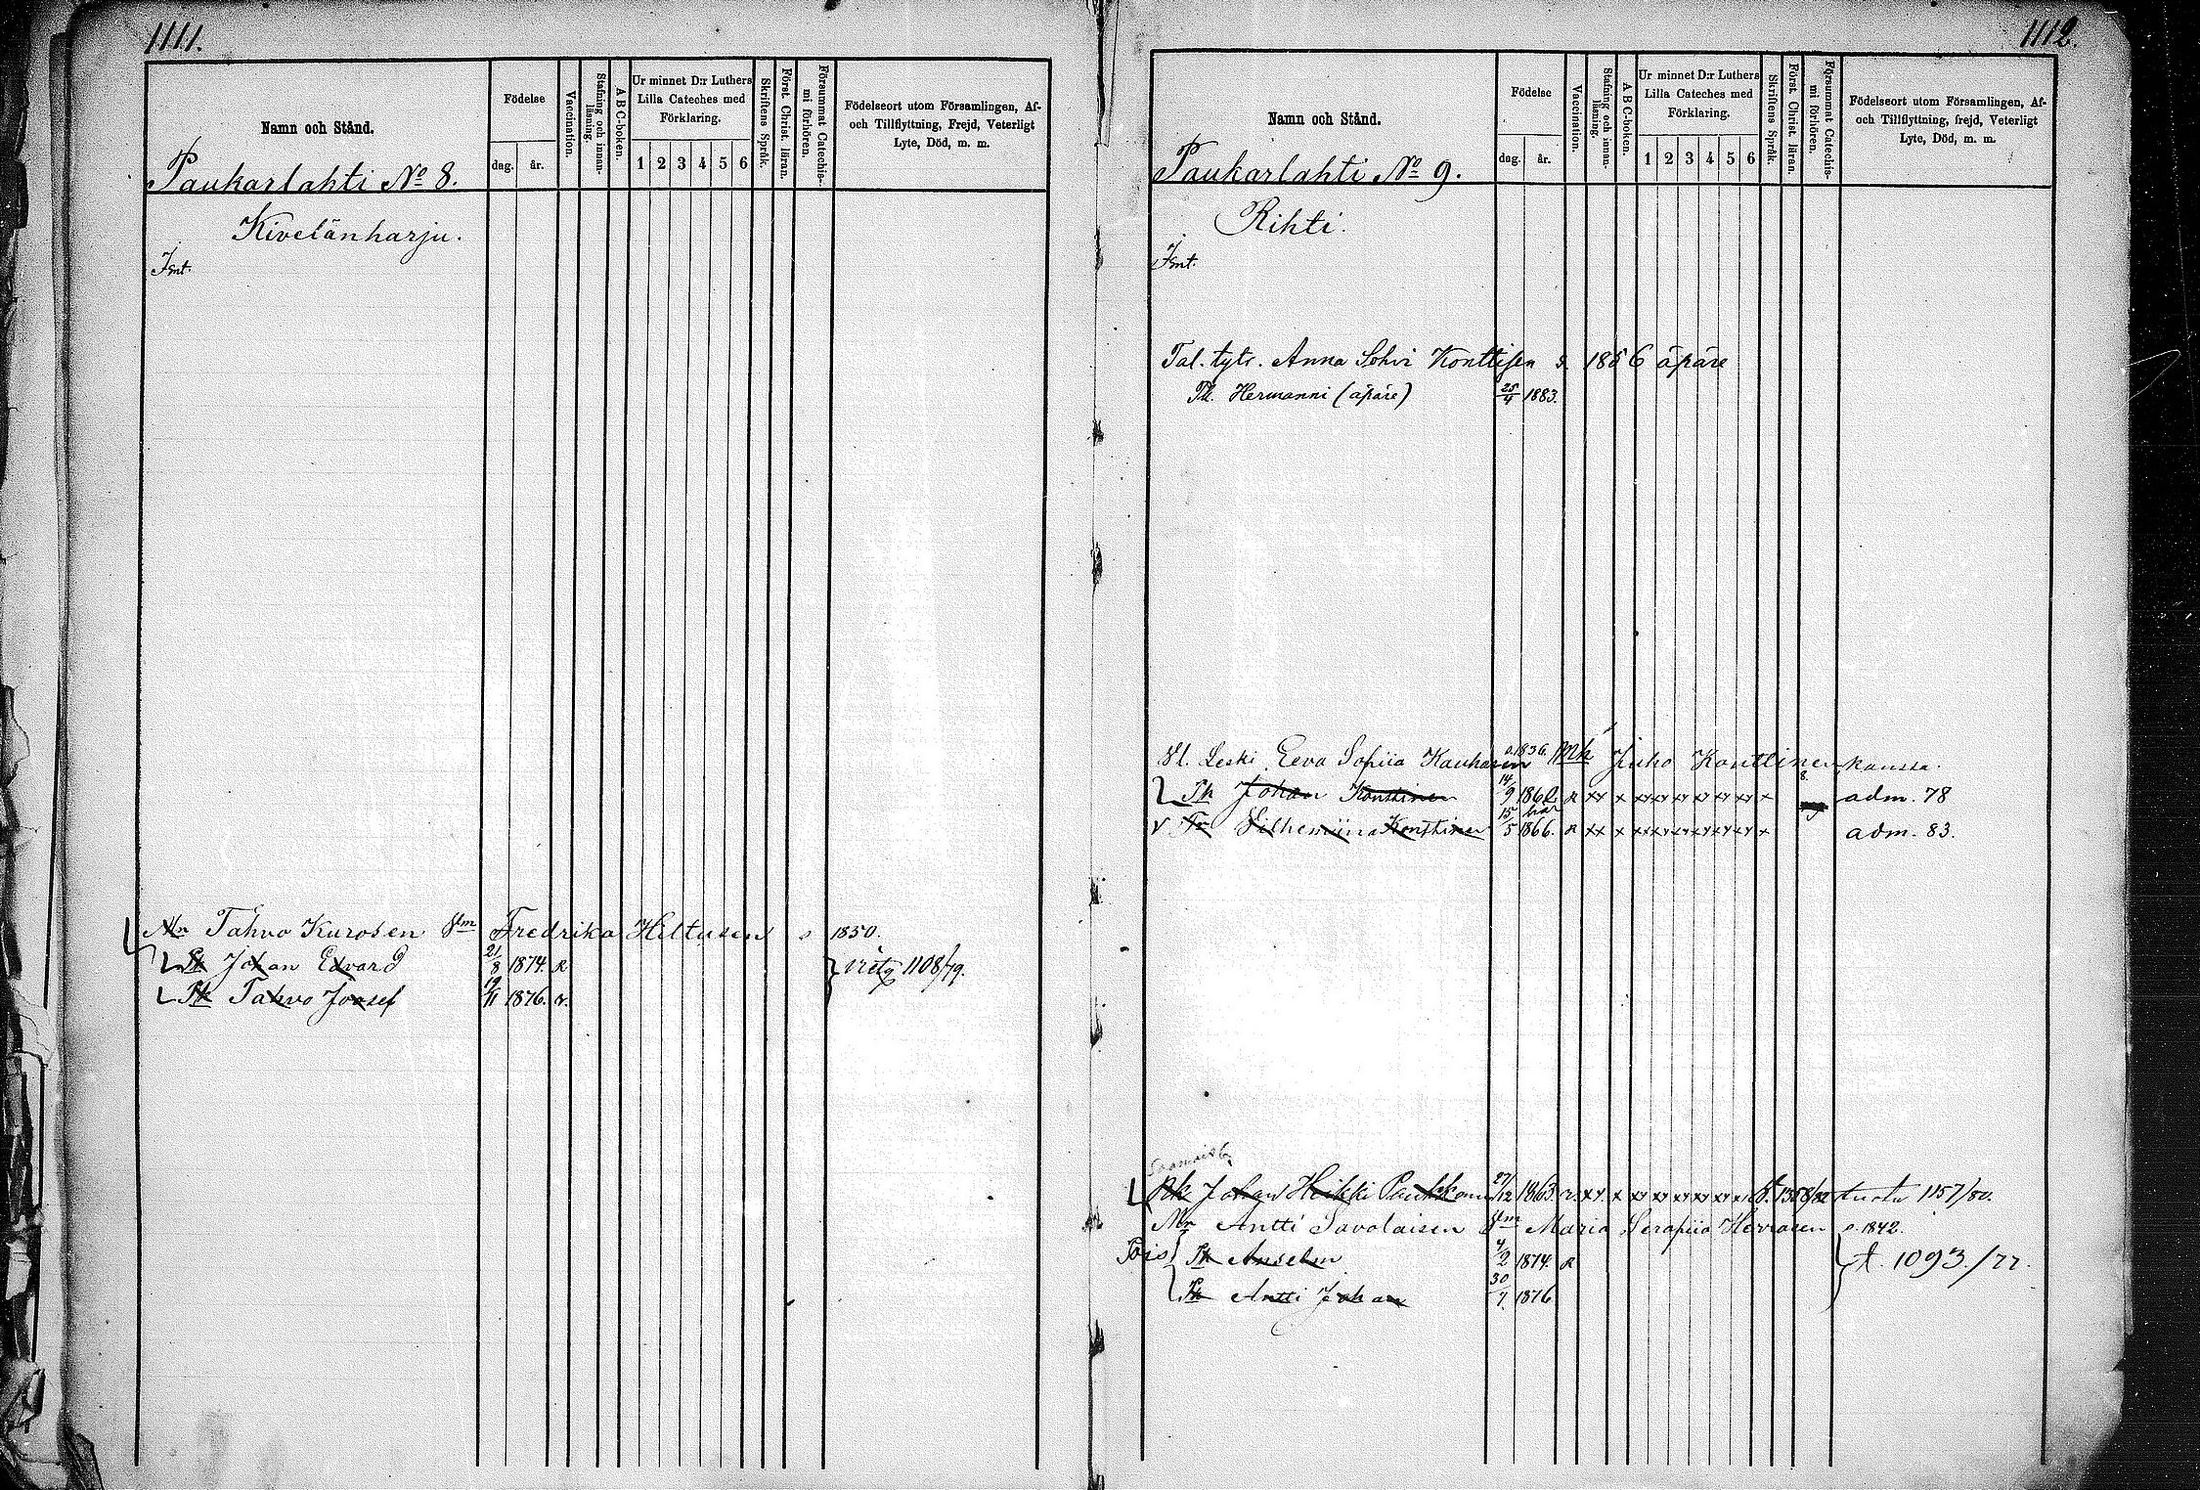 1111.
Namn och Stånd.
Födelse
dag. år.
Vaccination.
Stafning och innan-läsning.
A B C-boken.
Ur minnet D:r Luthers
Lilla Cateches med
Förklaring.
1 2 3 4 5 6
Skriftens Språk.
Först. Christ. läran.
Försummat Catechis-
mi förhören.
Födelseort utom Församlingen, Af-
och Tillflyttning, Frejd, Veterligt
Lyte, Död, m. m.
Paukarlahti No 8.
Kivelänharju.
Mn Tahvo Kurosen Vm Fredrika Hiltusen s 1850.
Pk Johan Edvard 21/8 1874. R
Pk Tahvo Joosef 19/11 1876. r.
1108/79.
1112.
Namn och Stånd.
Födelse
dag. år.
Vaccination.
Stafning och innan-läsning.
A B C-boken.
Ur minnet D:r Luthers
Lilla Cateches med
Förklaring.
1 2 3 4 5 6
Skriftens Språk.
Först. Christ. läran.
Försummat Catechis-
mi förhören.
Födelseort utom Församlingen, Af-
och Tillflyttning, frejd, Veterligt
Lyte, Död, m. m.
Paukarlahti No 9.
Rihti.
Tal. tytr. Anna Sohvi Konttisen s. 1856 äpäre
Pk. Hermanni (äpäre) 25/4 1883.
Leski Eeva Sofiia Kauhasen s. 1836. Mk Juho Konttinen kanssa.
Pk Johan Konttinen 14/9 1862 R xx x xx xx xx xx xx xx x adm. 78
Vilhemiina Konttinen 15/5 1866. R xx x xx xx xx xx xx xx x adm. 83.
Johan Heikki 27/12 1863. r. xx x xx xx xx xx xx 1358/82 1157/80.
Mn Antti Savolaisen Vm Maria Serafiia s. 1842.
Pois Pk Anselm 4/2 1874. R
t. 1093./77.
Pk Antti Johan 30/7 1876